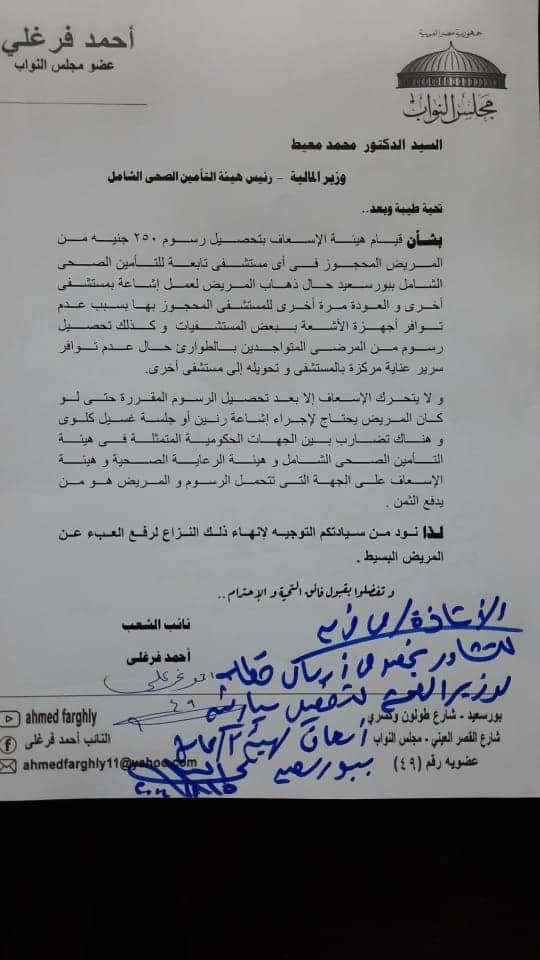 أحمد فرغلي
عضو مجلس النواب
جمهورية مصر العربية
مجلس النواب
السيد الدكتور محمد معيط
وزير المالية - رئيس هيئة التأمين الصحى الشامل
تحية طيبة وبعد..
بشأن قيام هيئة الإسعاف بتحصيل رسوم ٢٥٠ جنيه من
المريض المحجوز فى أى مستشفى تابعة للتأمين الصحى
الشامل ببورسعيد حال ذهاب المريض لعمل إشاعة بمستشفى
أخرى و العودة مرة أخرى للمستشفى المحجوز بها بسبب عدم
توافر أجهزة الأشعة ببعض المستشفيات و كذلك تحصيل
رسوم من المرضى المتواجدين بالطوارئ حال عدم توافر
سرير عناية مركزة بالمستشفى و تحويله إلى مستشفى أخرى.
و لا يتحرك الإسعاف إلا بعد تحصيل الرسوم المقررة حتى لو
كان المريض يحتاج لإجراء إشاعة رنين أو جلسة غسيل كلوى
و هناك تضارب بين الجهات الحكومية المتمثلة فى هيئة
التأمين الصحى الشامل و هيئة الرعاية الصحية و هيئة
الإسعاف على الجهة التى تتحمل الرسوم و المريض هو من
يدفع الثمن .
لذا نود من سيادتكم التوجيه لإنهاء ذلك النزاع لرفع العبء عن
المريض البسيط .
و تفضلوا بقبول فائق التحية و الإحترام..
نائب الشعب
أحمد فرغلى
احمد فرغلى
٤٩
الأستاذة/ مي فريد
للتشاور بخصوص إرسال خطاب
لوزير الصحة لتحصيل سيارات
إسعاف لهيئة
ببورسعيد
ahmed farghly
النائب أحمد فرغلى
ahmedfarghly11@yahoo.com
بورسعيد - شارع طولون وكسري
شارع القصر العيني - مجلس النواب
عضويه رقم (٤٩)